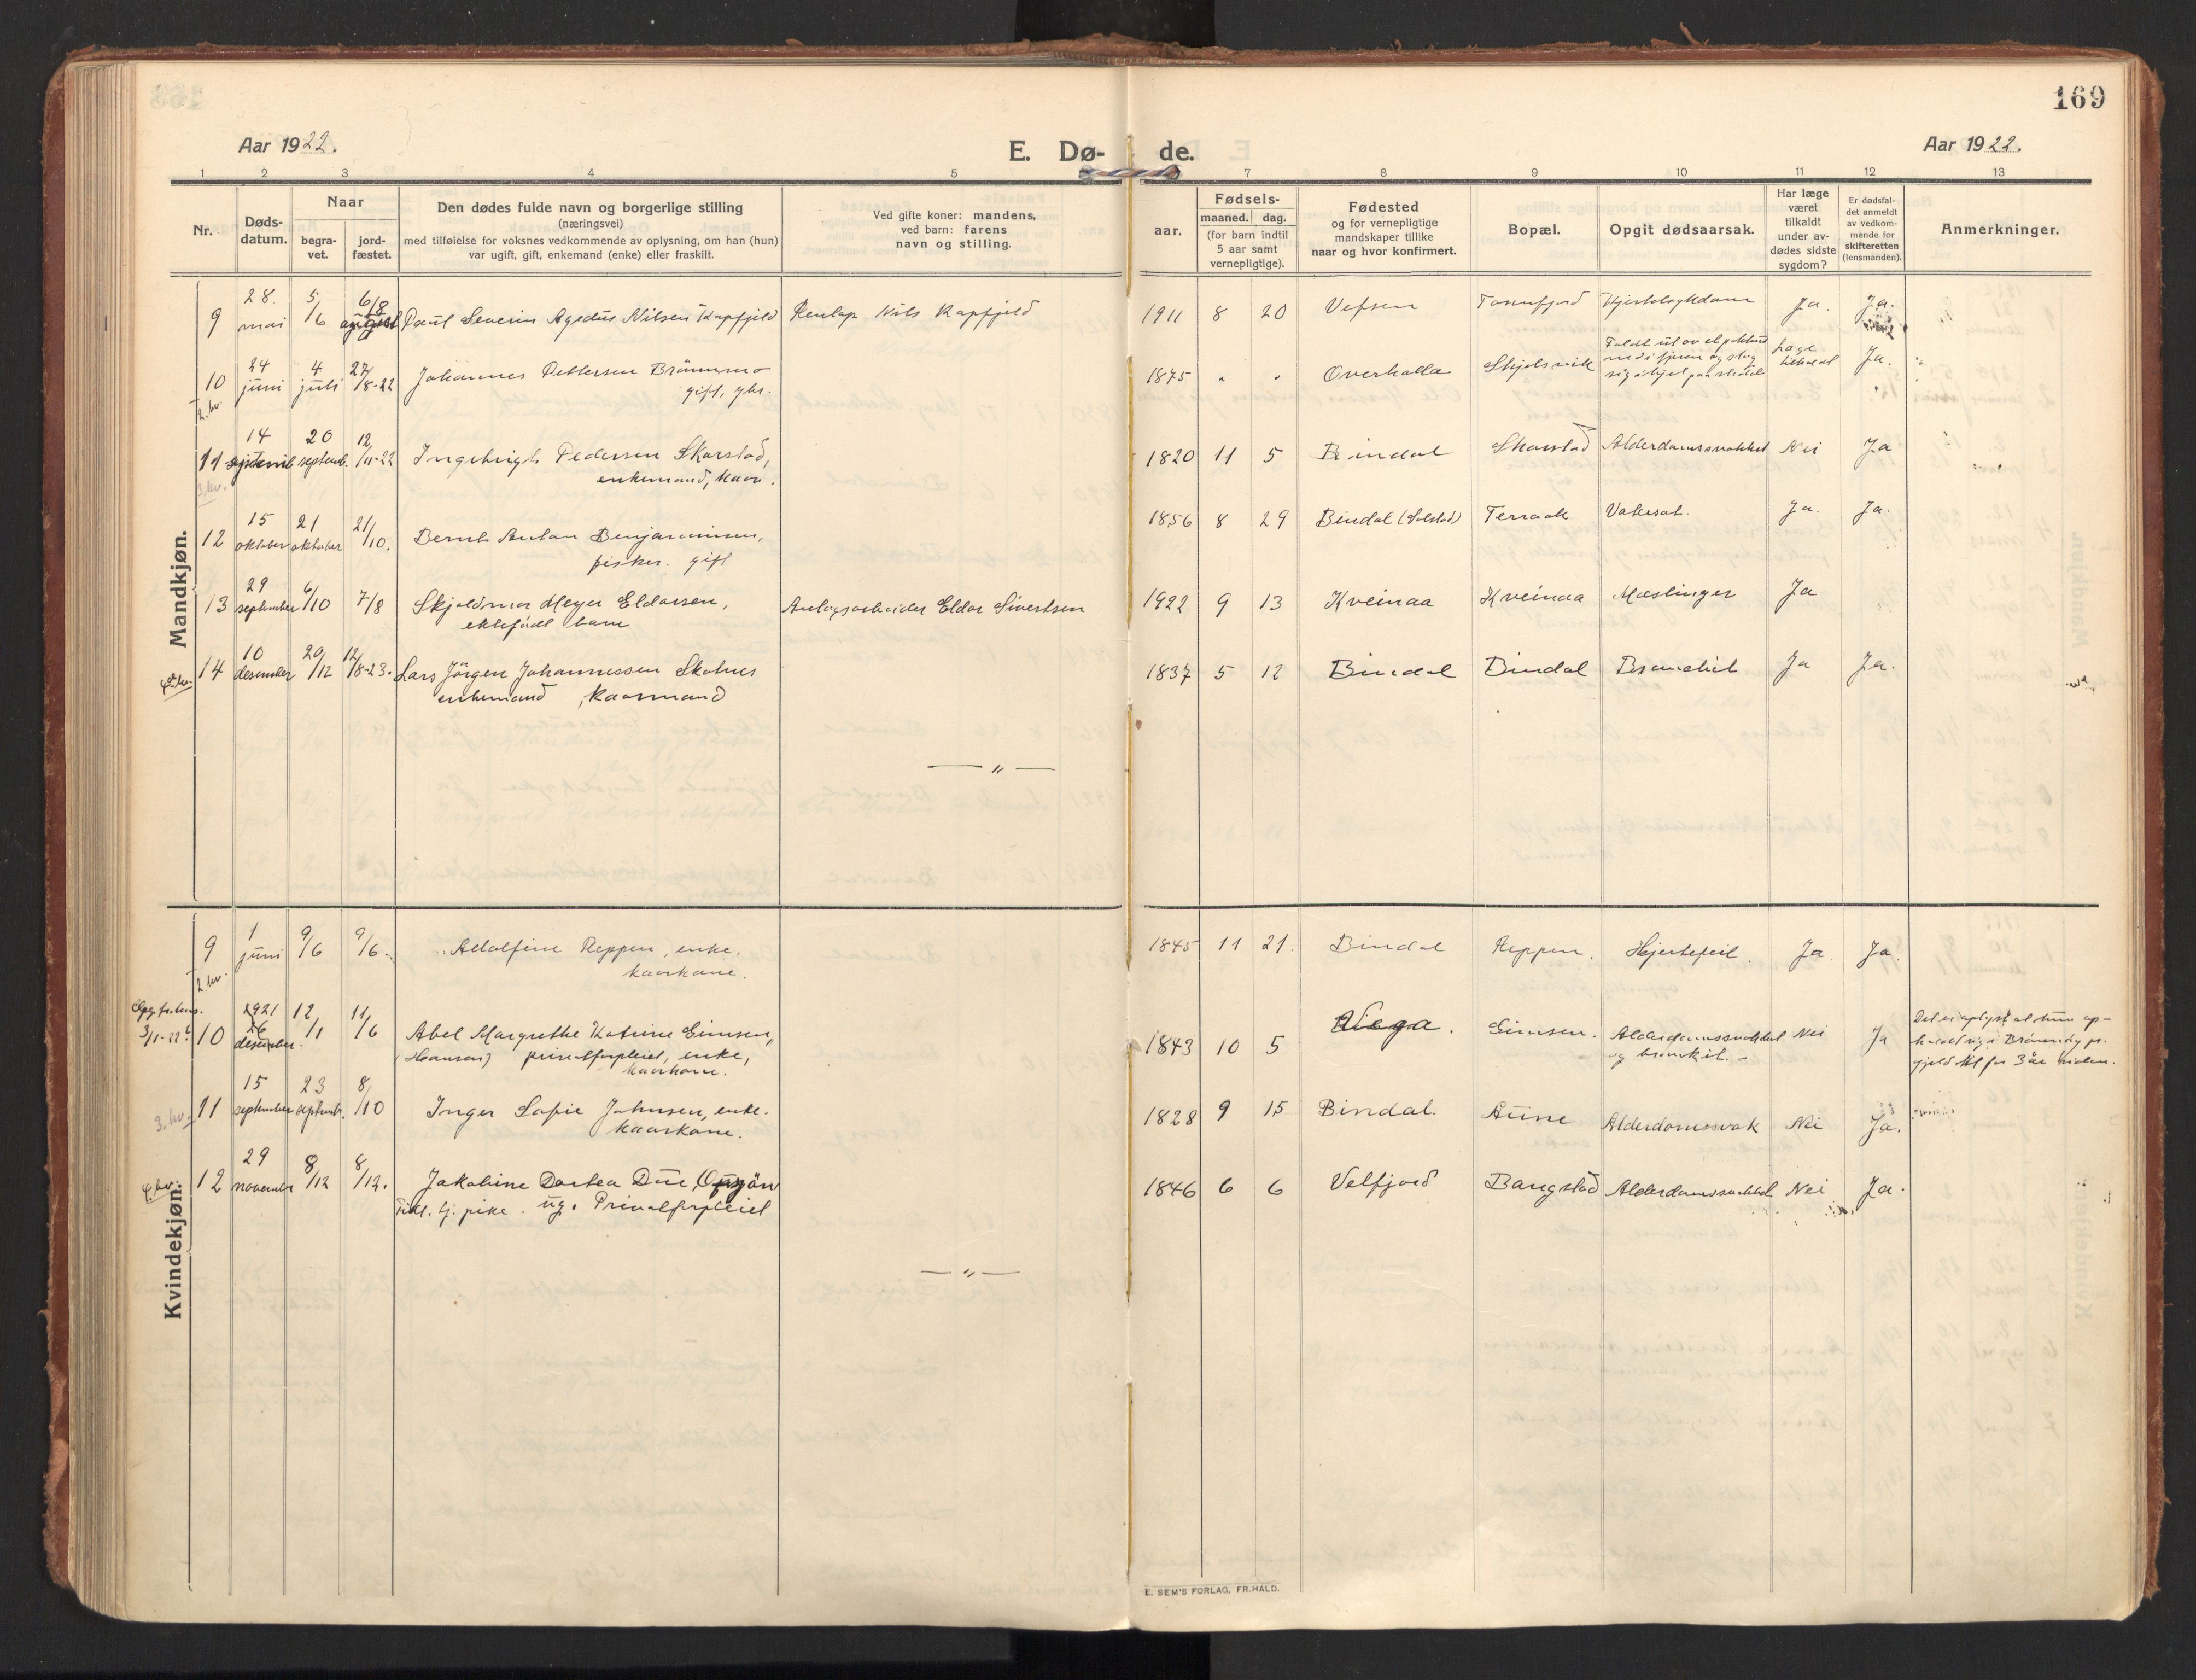 169
Aar 1922.
E. Dø- de.
Aar 1922.
1 2 3 4 5 6 7 8 9 10 11 12 13
Nr.
Døds-
datum.
Naar
begra-
vet.
jord-
fæstet.
Den dødes fulde navn og borgerlige stilling
(næringsvei)
med tilføielse for voksnes vedkommende av oplysning, om han (hun)
var ugift, gift, enkemand (enke) eller fraskilt.
Ved gifte koner: mandens,
ved barn: farens
navn og stilling.
aar.
Fødsels-
maaned. dag.
(for barn indtil
5 aar samt
vernepligtige).
Fødested
og for vernepligtige
mandskaper tillike
naar og hvor konfirmert.
Bopæl.
Opgit dødsaarsak.
Har læge
været
tilkaldt
under av-
dødes sidste
sygdom?
Er dødsfal-
det anmeldt
av vedkom-
mende for
skifteretten
(lensmanden).
Anmerkninger.
Mandkjøn.
9 28. mai 5/6 6/8 august Paul Severin Agedus Nilsen Kapfjeld Renlap Nils Kapfjeld 1911 8 20 Vefsen Tosenfjord Ja. Ja.
10 24 juni 4 juli 27/8-22 Johannes Pettersen Brönmo
gift, gbr. 1875 " " Overhalla Skjelsvik Ja.
2. kv.
11 14 september 20 septemb. 12/11-22 Ingebrigt Pedersen Skarstad,
enkemand, kaarm. 1820 11 5 Bindal Skarstad Alderdomssvakhet Nei Ja
3. kv.
12 15 oktober 21 oktober 21/10. Bernt Anton Benjaminsen,
fisker. gift 1856 8 29 Bindal (Solstad) Terraak Ja. Ja.
13 29 september 6/10 7/8 Skjoldmar Meyer Eldarsen,
ektefödt barn Anlægsarbeider Eldar Sivertsen 1922 9 13 Kveinaa Kveinaa Meslinger Ja
4. kv. 14 10 desember 20/12 12/8-23. Lars Jörgen Johannessen Skotnes
enkemand, kaarmand 1837 5 12 Bindal Bindal Bronchit Ja Ja.
— " —
Kvindekjøn.
9 1 juni 9/6 9/6. Adolfine Reppen, enke,
kaarkone. 1845 11 21. Bindal Reppen. Hjertefeil. Ja Ja.
2. kv.
3/1-22 10 1921 26 desember. 12/1 11/6 Abel Margrethe Katrine Simsen,
(Hansen) privatforpleiet, enke,
kaarkone. 1843 10 5 Vega. Simsen. Alderdomssvakhet
og bronkit. - Nei Ja Det er oplyst at hun op-
holdt sig i Brönnöy pr.
gjeld til for 3 år siden.
3. kv. 11 15 september 23 septemb. 8/10 Inger Sofie Johnsen, enke.
kaarkone. 1828 9 15 Bindal. Aune Alderdomssvak Nei Ja.
4. kv. 12 29 november 8/12 8/12. Jakobine Dortea Due,
pike. ug. Privatforpleiet 1846 6 6 Velfjord Bangstad Alderdomssvakhet. Nei Ja.
— " —
E. SEM'S FORLAG, FR.HALD.